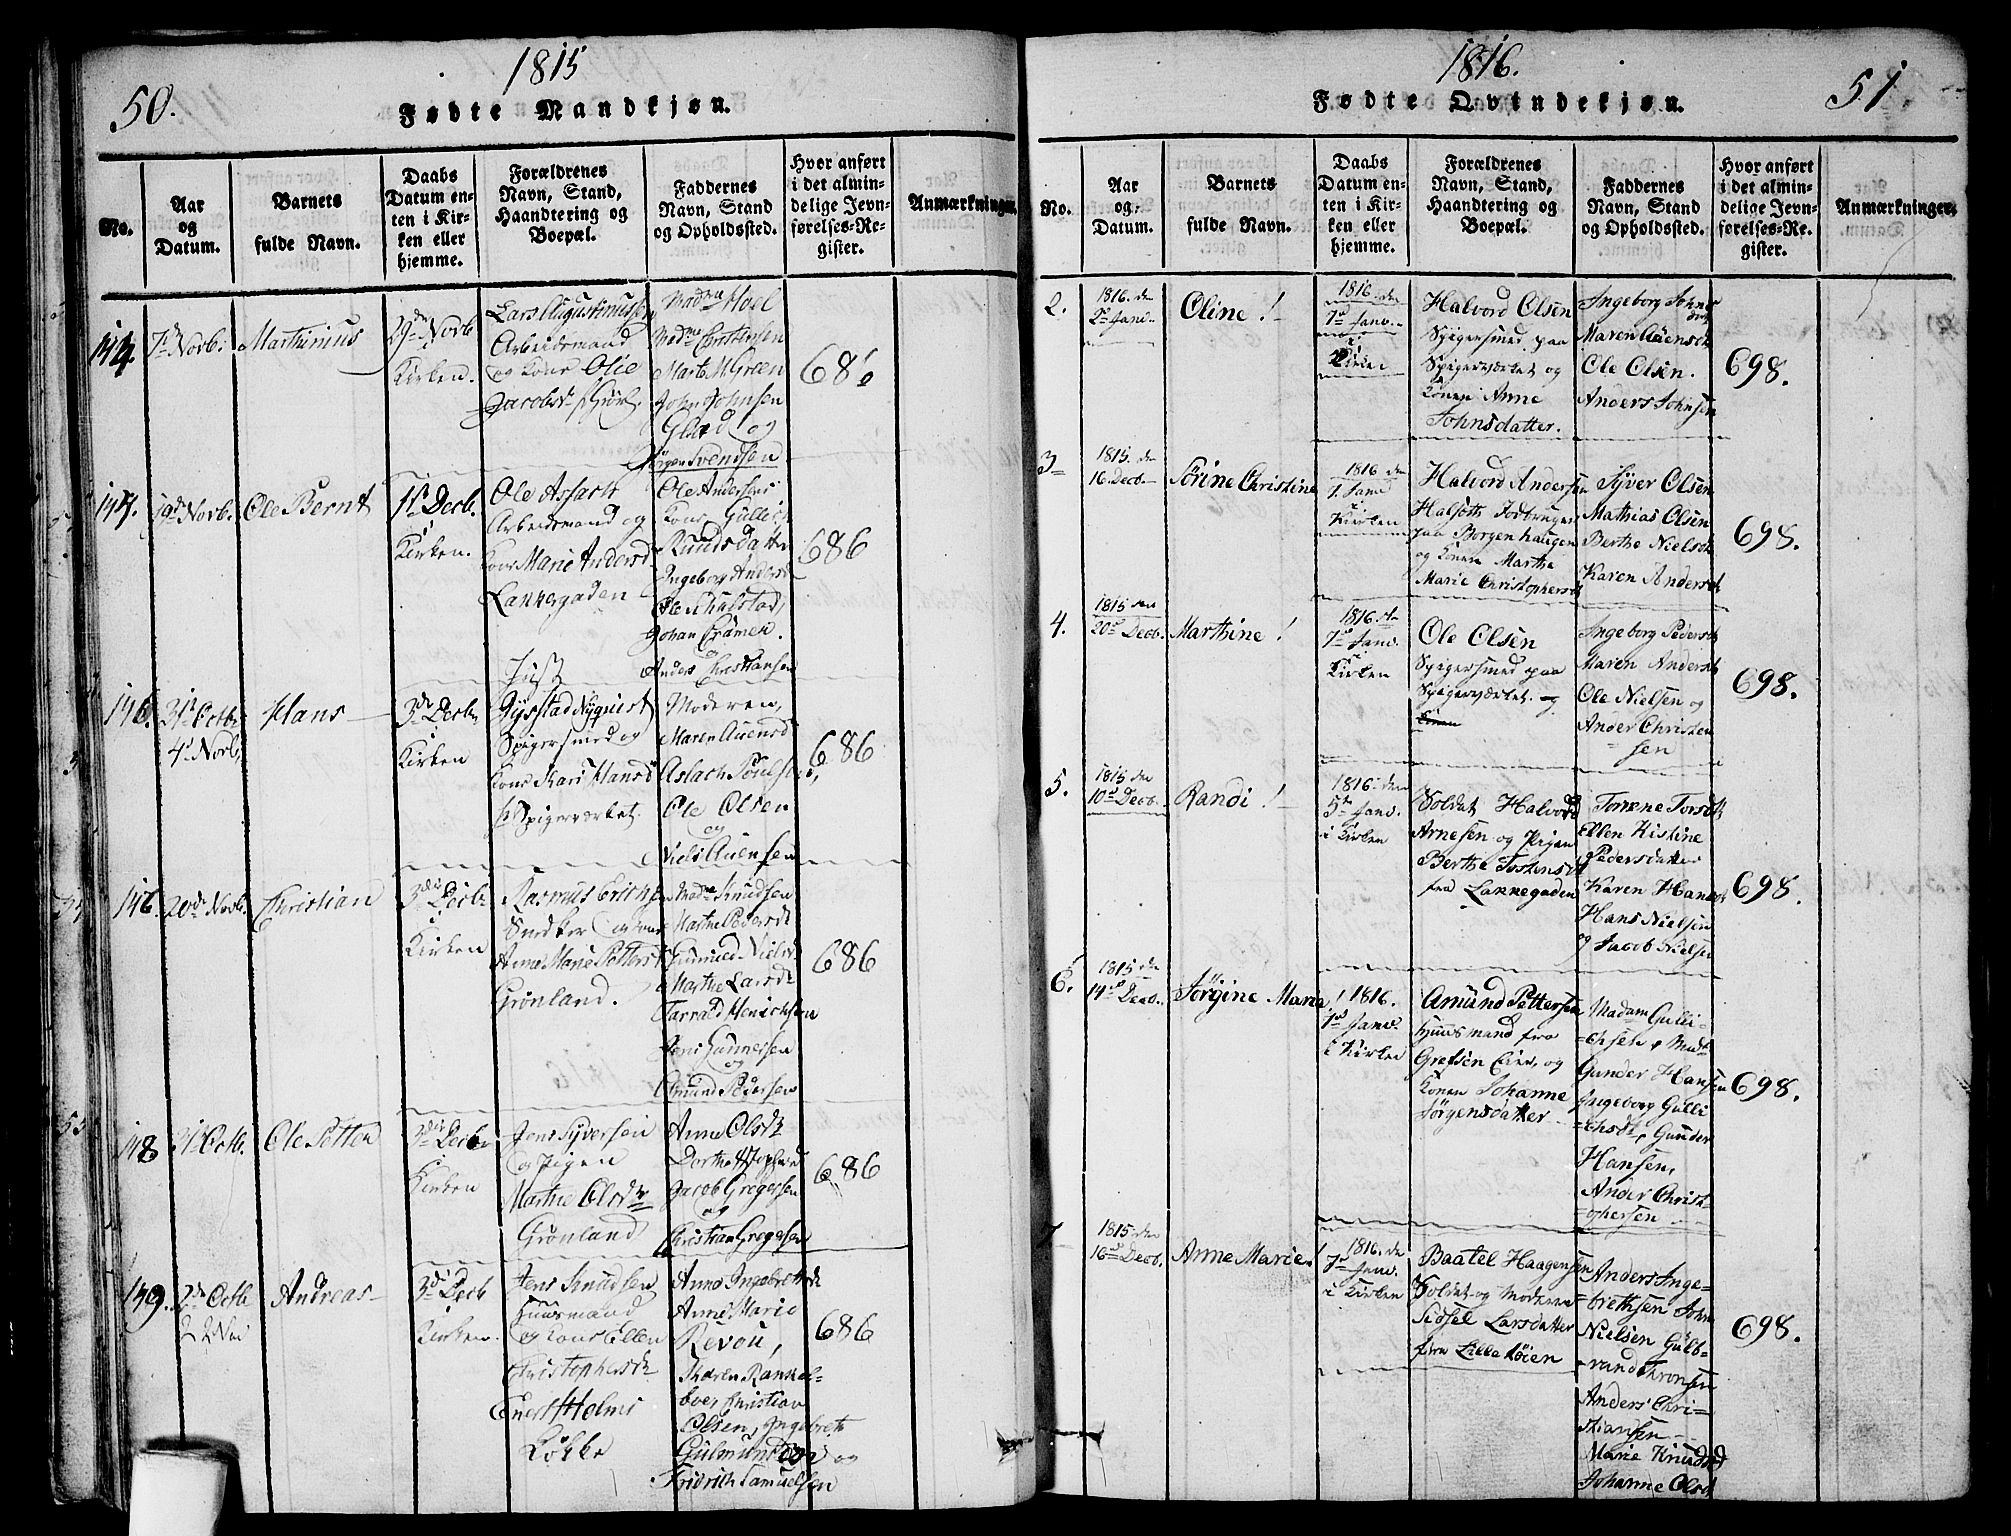 50.
1815
Fødte Mandkjøn.
No.
Aar
og
Datum.
Barnets
fulde Navn.
Daabs
Datum en-
ten i Kir-
ken eller
hjemme.
Forældrenes
Navn, Stand,
Haandtering og
Boepæl.
Faddernes
Navn, Stand
og Opholdssted.
Hvor anført
i det almin-
delige Jevn-
førelses-Re-
gister.
Anmærkninger.
7de Novb:
Marthinius
29de Novb
i
Kirken.
Lars Augustinussen
Arbeidsmand
og Kone Olie
Madme Moel
Madme Christensen
Marte M Green
John Johnsen
Glad og
Jørgen Svendsen
686
19de Novb.
Ole Bernt
1st Decb.
i
Kirken.
Ole Assach
Arbeidsmand og
Kone Marie Andersd
Lakkegaden
Ole Andersens
Kone Gullech
Knudsdatter
Ingeborg Andersd
Johan Cramen.
og
Anders Christiansen
686
31t Octb:
4d Novb.
Hans
3de Decb.
i
Kirken
Spigersmed og
Kone Kari Hansd
Spigerværket.
Moderen,
Maren Auensd
Aslach Poulsen,
Ole Olsen
og
Niels Auensen
686
146.
20de Novb.
Christian
3de Decb.
i
Kirken
Rasmus Erichsen
Snedker og Kone
Anne Marie Petters
Grønland.
Madme Knudsen
Marthe Pedersdt
Gunild Nielsd
Marthe Larsdt
Tarrald Henrichsen
Jens Gunnersen
og
Amund Pedersen
686
148
31t Octb.
Ole Petter
3de Decb.
i
Kirken
Jens Syversen
og Pigen
Marthe Olsdtr
Grønland
Anne Olsdt
Jacob Gregersen
og
Christian Gregersen
686
149.
2de Octb
Andreas
3de Decb
i
Kirken.
Jens Knudsen
Huusmand
og Kone Ellen
Christophersdt
Enert Holms
Løkke
Anne Ingebretsdt
Anne Marie
Revou,
Karen Rankel-
Christian
Olsen, Ingebret
og
Fridrich Samuelsen
686
1816.
51.
Fødte Qvindekjøn.
No.
Aar
og
Datum.
Barnets
fulde Navn.
Daabs
Datum en-
ten i Kir-
ken eller
hjemme.
Forældrenes
Navn, Stand,
Haandtering og
Boepæl.
Faddernes
Navn, Stand
og Opholdssted.
Hvor anført
i det almin-
delige Jevn-
førelses-Re-
gister.
Anmærkninger.
2.
1816. den
2d Janv.
Oline!
1816. den
7d Janv.
i
Kirken
Halvord Olsen
Spigersmed paa
Spigerværket og
Konen Anne
Johnsdatter.
Ingeborg Johns
datr
Maren Auensd
Ole Olsen.
Anders Johnsen
698.
3
1815. den
16. Decb.
Sørine Christine
1816 den
7. Janv
i
Kirken
Halvord Andersen
paa Borgenhaugen
og Konen Marthe
Marie Christophersdt
Syver Olsen
Mathias Olsen
Berthe Nielsdt
Karen Andersdt
698.
4.
1815 den
20d Decb.
Marthine!
1816 den
7d Janv.
i
Kirken
Ole Olsen
Spigersmed paa
Spigerværket og
Konen
Ingeborg Pedersdt
Maren Andersdt
Ole Nielsen og
Ander Christen
sen
698.
5.
1815 den
10d Decb.
Randi!
1816. den
5te Janv.
i Kirken
Soldat Halvord
Arnesen og Pigen
Berthe Tostensd
fra Lakkegaden
Torene Torsdt
Ellen Kistine
Pedersdatter
Karen Hansdt
Hans Nielsen
og Jacob Nielsen
698.
6.
1815 den
14d Decb.
Jørgine Marie!
1816.
7d Janv.
i Kirken
Amund Pettersen
Huusmand fra
Grefsen Eier, og
Konen Johanne
Jørgensdatter
Madam Gulli-
Gunder Hansen
Ingeborg Gulli
Gunder
Hansen,
Ander Christ-
ophersen
698.
7
1815. den
16d Decb.
Anne Marie!
1816. den
7d Janv.
i Kirken
Baatel Haagensen
Soldat og Moderen
Sidsel Larsdatter
fra Lille Tøien
Anders Inge-
brethsen John
Nielsen Gulb-
rand Thronsen
Anders Chri-
stiansen
Marie Knudsd
Johanne Olsd
698.